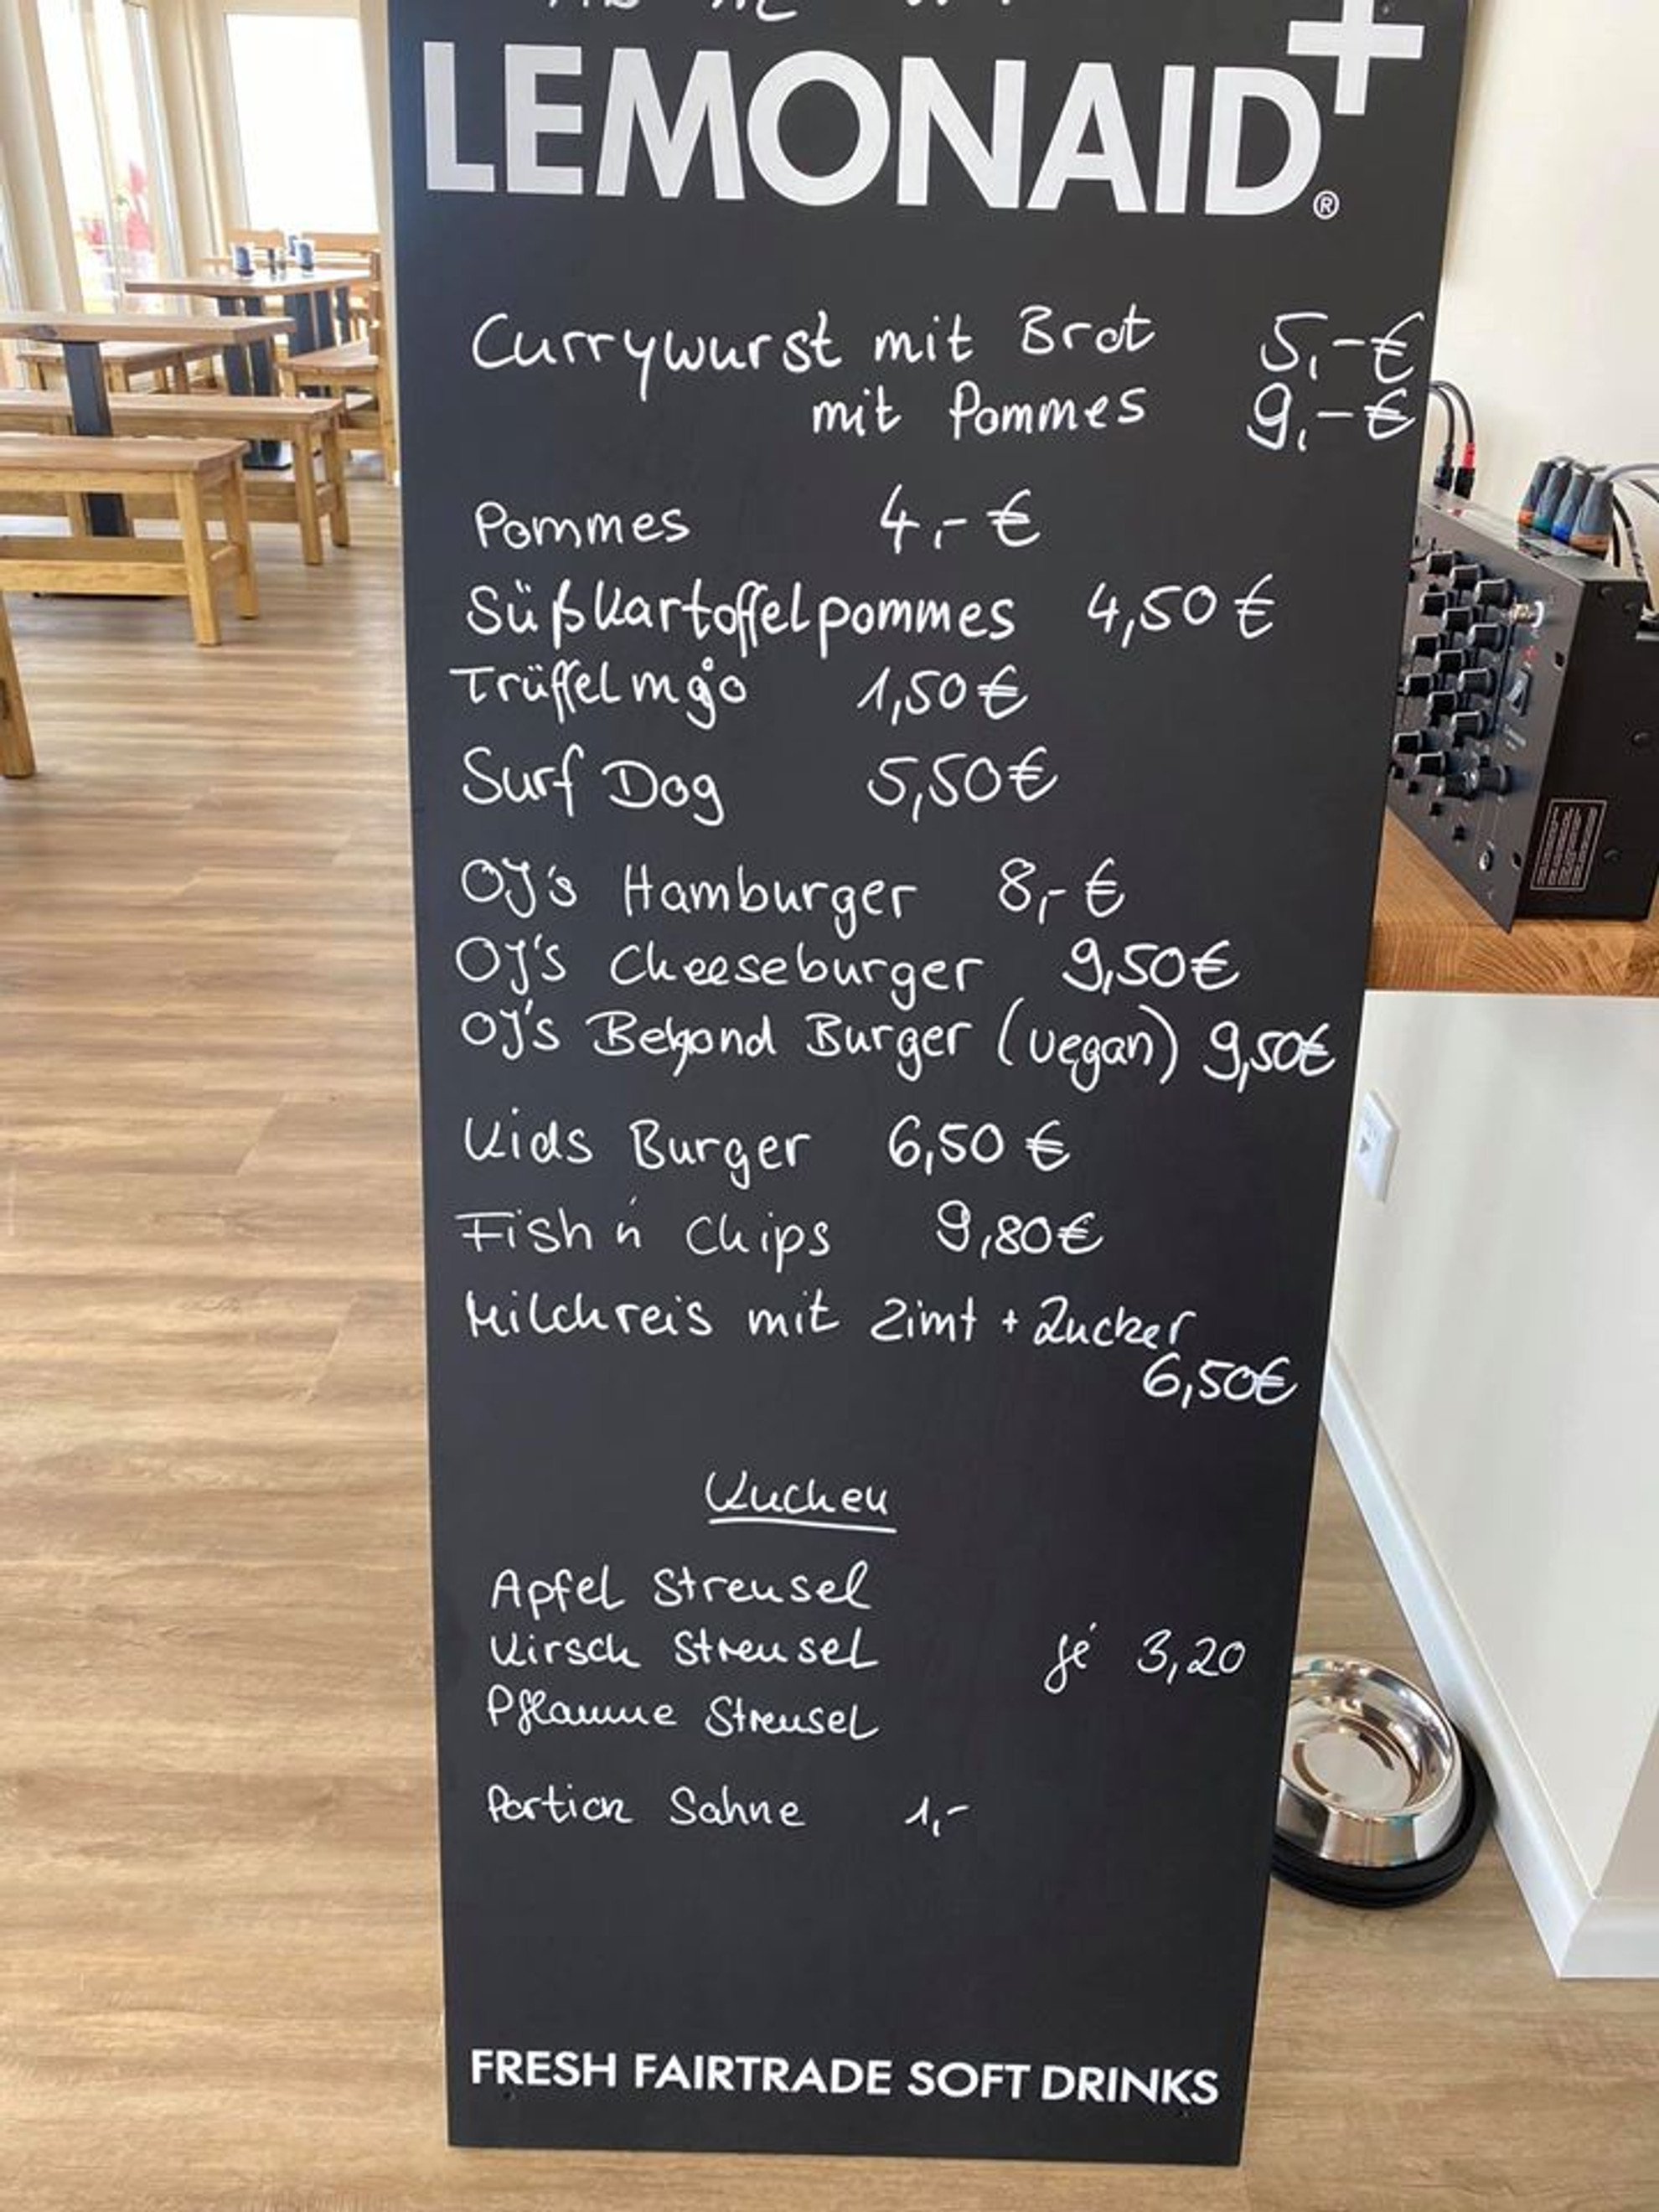 LEMONAID+®
Currywurst mit Brot 5,-€
mit Pommes 9,-€
Pommes 4,-€
Süßkartoffelpommes 4,50€
Trüffelmajo 1,50€
Surf Dog 5,50€
OJ's Hamburger 8,-€
OJ's Cheeseburger 9,50€
OJ's Beyond Burger (vegan) 9,50€
Kids Burger 6,50€
Fish 'n' Chips 9,80€
Milchreis mit Zimt + Zucker
6,50€
Kuchen
Apfel Streusel
Kirsch Streusel jé 3,20
Pflaume Streusel
Portion Sahne 1,-
FRESH FAIRTRADE SOFT DRINKS